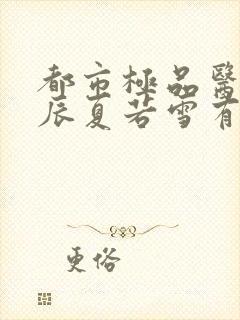 都市極品醫
辰夏若雪有
更俗